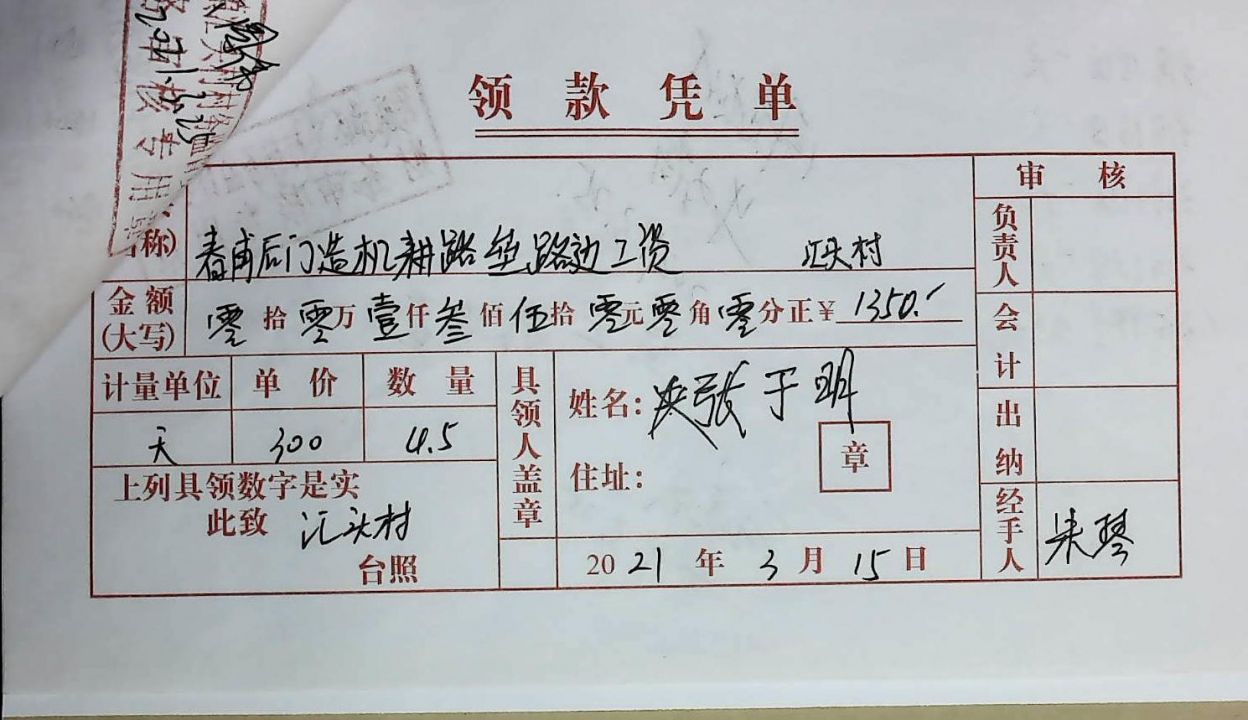 领款凭单
审核专用
审核
称)
春甫后门造机耕路垫路边工资 汇头村
负责人
金额(大写)
零拾零万壹仟叁佰伍拾零元零角零分正¥1350.-
会计
计量单位 单价 数量
天 300 4.5
具领人盖章
姓名: 于明
章
住址:
出纳
上列具领数字是实
此致 汇头村
台照
2021年3月15日
经手人 朱琴